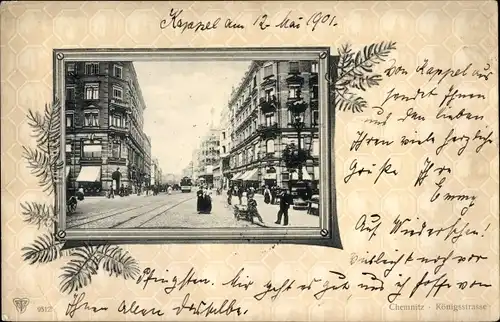 Kappel am 12. Mai 1901.
von Kappel aus
sendet Ihnen
und den lieben
Ihren viele herzliche
Grüße Ihre
Emmy
Auf Wiedersehen!
noch vor
Pfingsten. Mir geht es gut und ich hoffe von
Ihnen Allen dasselbe.
Chemnitz - Königsstrasse